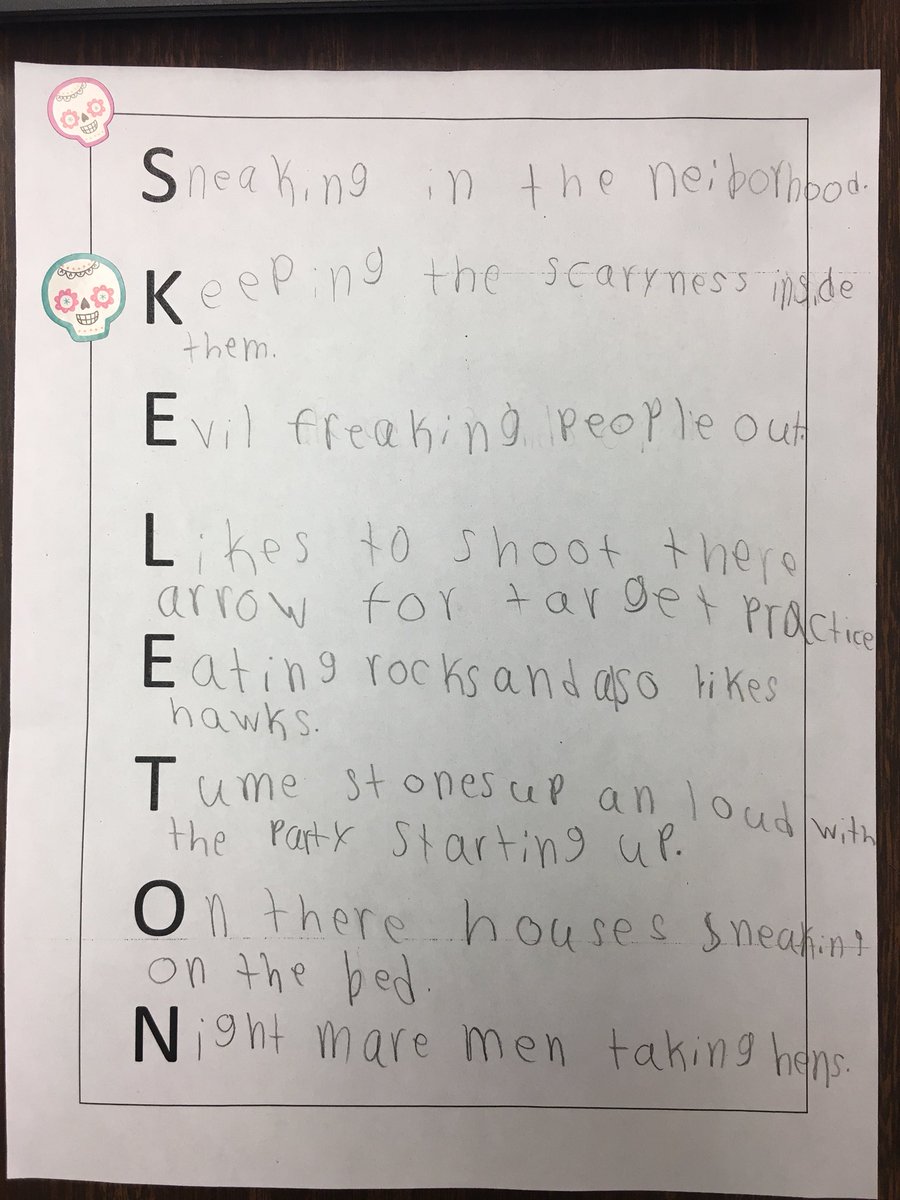 Sneaking in the neiborhood.
Keeping the scaryness inside
them.
Evil freaking people out.
Likes to shoot there
arrow for target practice
Eating rocks and also likes
hawks.
Tume stones up an loud with
the party starting up.
On there houses sneaking
on the bed.
Night mare men taking hens.